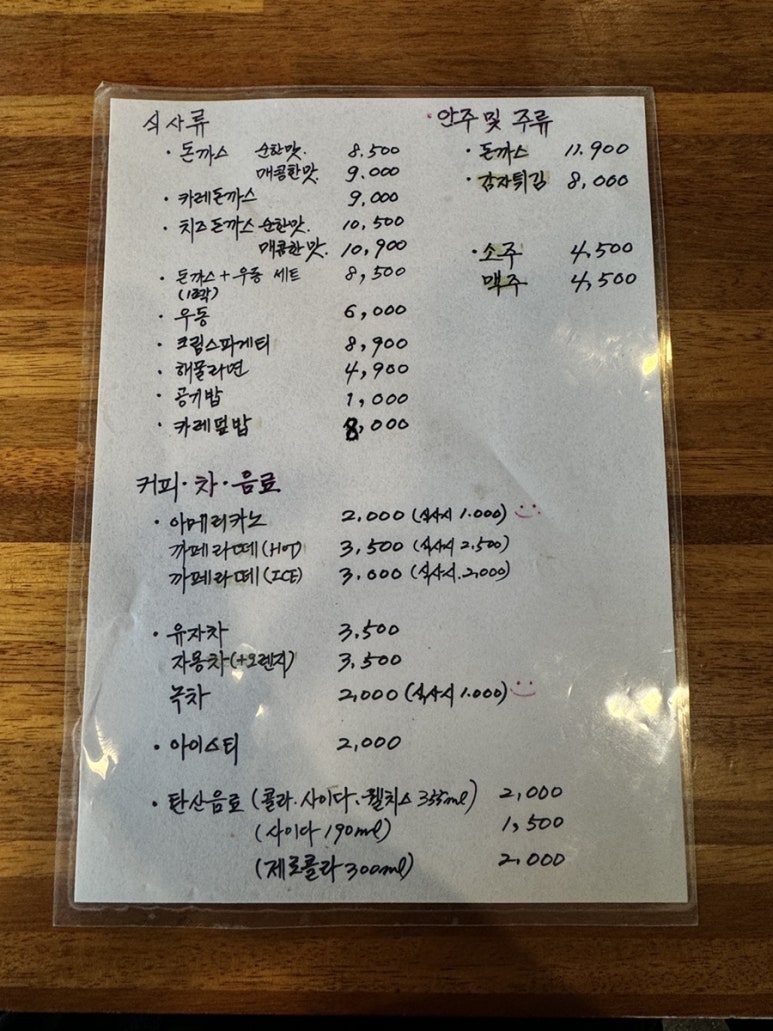 식사류
· 돈까스 순한맛. 8.500
매콤한맛. 9.000
· 카레돈까스 9,000
· 치즈돈까스 순한맛. 10,500
매콤한맛. 10,900
· 돈까스 + 우동 세트 8,500
(1조각)
· 우동 6,000
· 크림스파게티 8,900
· 해물라면 4,900
· 공기밥 1,000
· 카레덮밥 8,000
· 안주 및 주류
· 돈까스 11.900
· 감자튀김 8,000
· 소주 4,500
맥주 4,500
커피 · 차 · 음료
· 아메리카노 2,000 (식사시 1.000)
까페라떼 (HOT) 3,500 (식사시 2,500)
까페라떼 (ICE) 3,000 (식사시.2,000)
· 유자차 3,500
자몽차 (+오렌지) 3,500
녹차 2,000 (식사시 1.000)
· 아이스티 2,000
· 탄산음료 (콜라.사이다.웰치스 355ml) 2,000
(사이다 190ml) 1,500
(제로콜라 300ml) 2,000